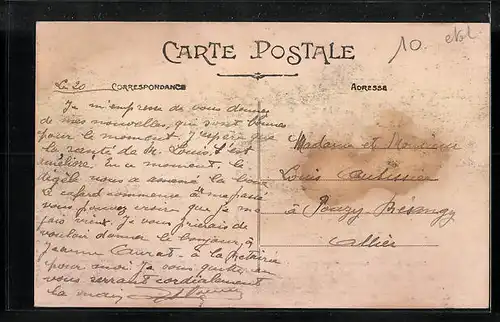 10
CARTE POSTALE
Le 20 CORRESPONDANCE
ADRESSE
Je m'empresse de vous donner
de mes nouvelles, qui sont bonnes
pour le moment. J'espère que
la santé de M. Louis s'est
amélioré. En ce moment, le
dégèle nous a amené la boue
Le cafard commence à me passé
vous pouvez croire que je me
fais vieux. Je vous prierais de
vouloir donner le bonjour, à
Jeanne à la
pour moi. Je vous quitte en
vous serrant cordialement
la main
Madame et Monsieur
Louis
à Pouzy Mésangy
Allier